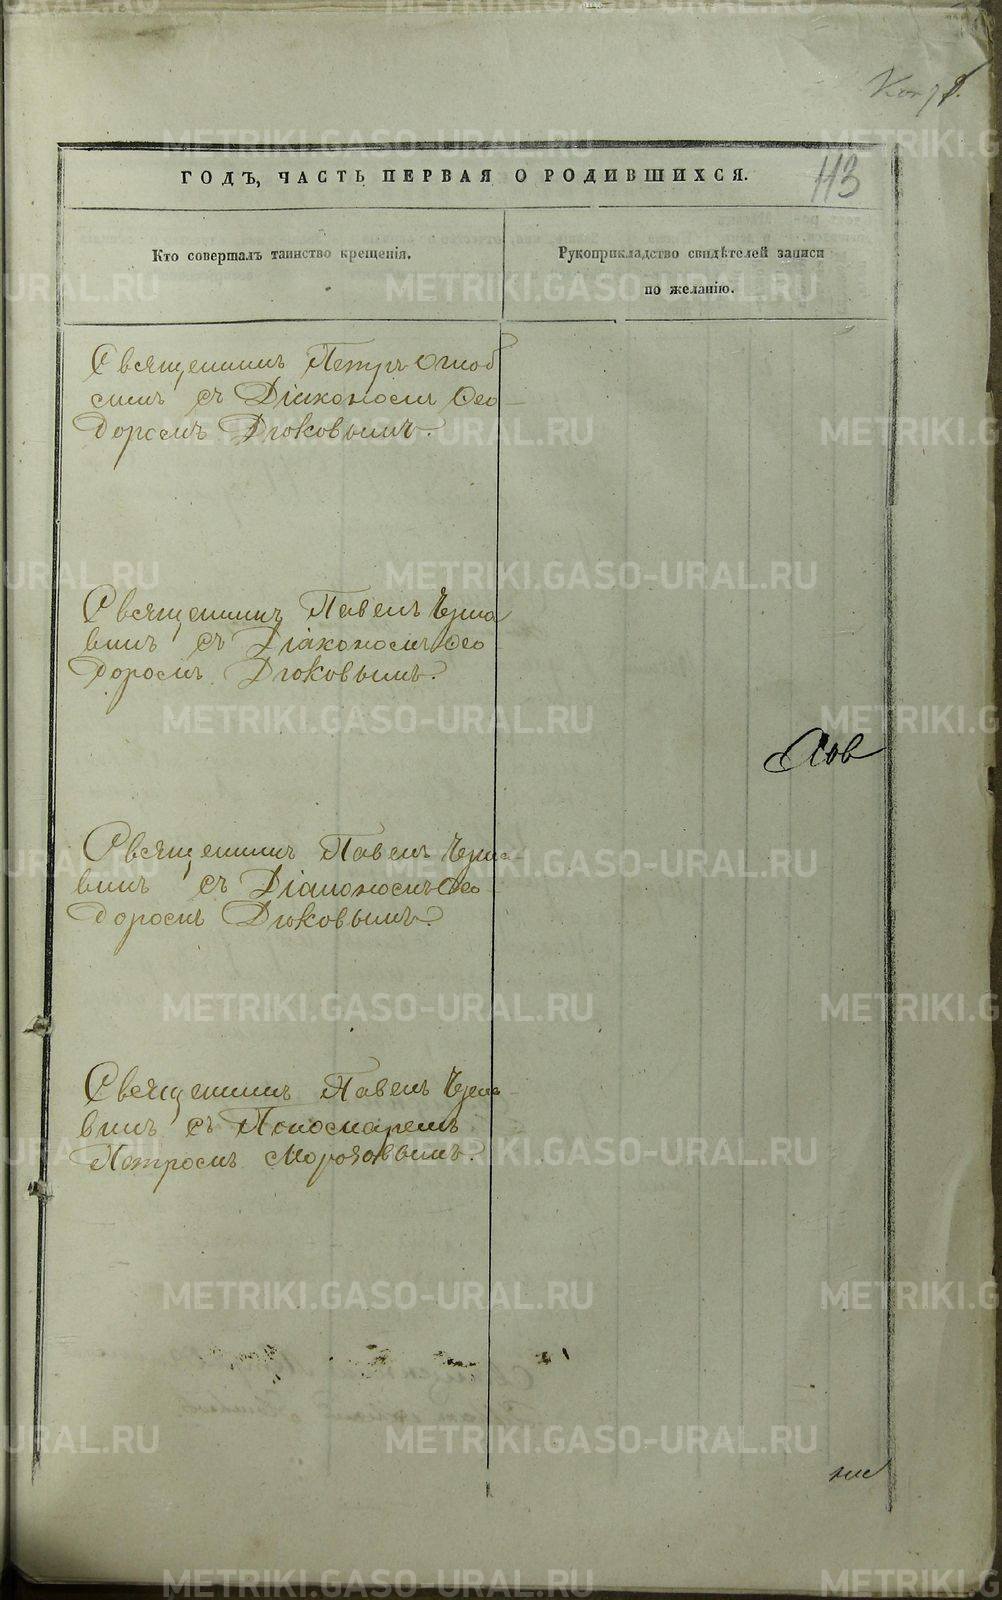 113
ГОДЪ, ЧАСТЬ ПЕРВАЯ О РОДИВШИХСЯ.
Кто совершалъ таинство крещенія.
Рукоприкладство свидѣтелей записи
по желанію.
Священникъ Петръ
съ Діакономъ Ѳео
доромъ Дюковымъ.
Священникъ Павелъ Черна
винъ съ Діакономъ Ѳео
доромъ Дюковымъ.
Священникъ Павелъ Черна
винъ съ Діакономъ Ѳео
доромъ Дюковымъ.
Священникъ Павелъ Черна
винъ съ Пономаремъ
Петромъ Морозовымъ.
METRIKI.GASO-URAL.RU